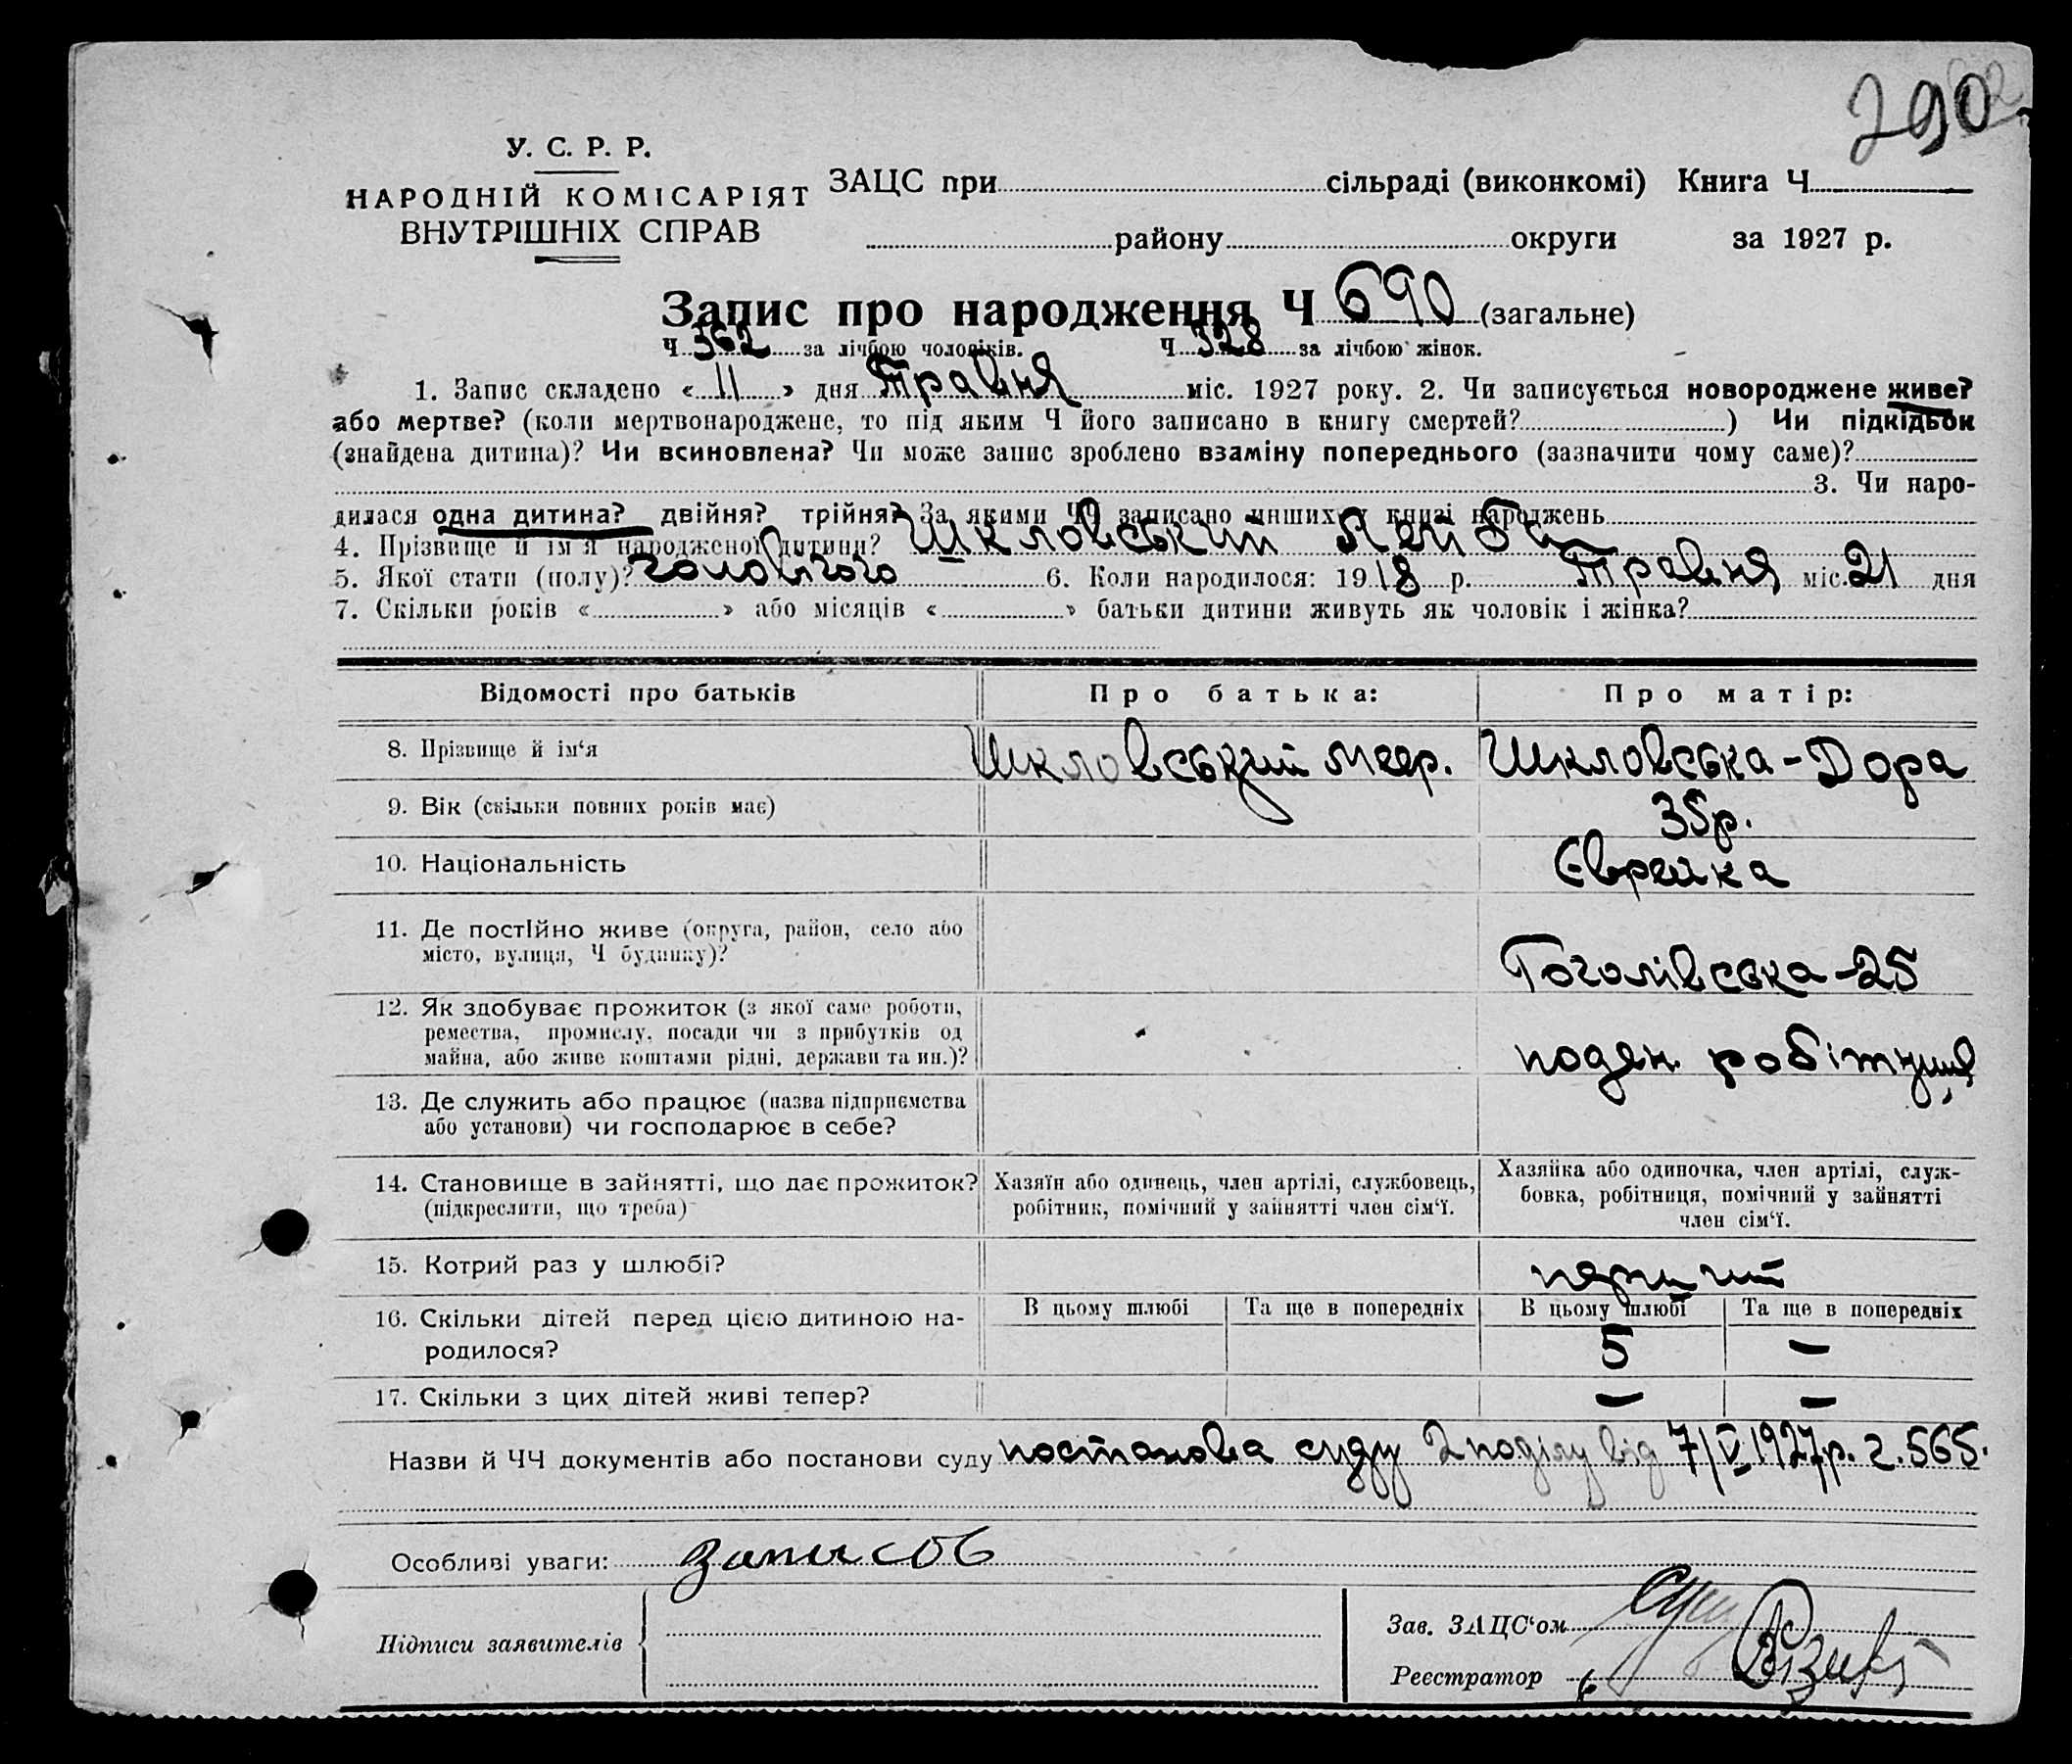 290
У. С. Р. Р.
НАРОДНІЙ КОМІСАРІЯТ
ВНУТРІШНІХ СПРАВ
ЗАЦС при сільраді (виконкомі) Книга Ч
району округи за 1927 р.
Запис про народження Ч 690 (загальне)
Ч 362 за лічбою чоловіків. Ч 328 за лічбою жінок.
1. Запис складено « 11 » дня Травня міс. 1927 року. 2. Чи записується новороджене живе?
або мертве? (коли мертвонароджене, то під яким Ч його записано в книгу смертей? ) Чи підкідьок
(знайдена дитина)? Чи всиновлена? Чи може запис зроблено взаміну попереднього (зазначити чому саме)?
3. Чи наро-
дилася одна дитина? двійня? трійня? За якими ЧЧ записано инших у книзі народжень
4. Прізвище й ім'я народженої дитини? Шкловський Лейба
5. Якої стати (полу)? чоловічого 6. Коли народилося: 1918 р. Травня міс. 21 дня
7. Скільки років « » або місяців « » батьки дитини живуть як чоловік і жінка?
Відомості про батьків Про батька: Про матір:
8. Прізвище й ім‘я Шкловський Меер. Шкловська-Дора
9. Вік (скільки повних років має) 35р.
10. Національність Єврейка
11. Де постійно живе (округа, район, село або
місто, вулиця, Ч будинку)? Гоголівська-25
12. Як здобуває прожиток (з якої саме роботи,
ремества, промислу, посади чи з прибутків од
майна, або живе коштами рідні, держави та ин.)? поден. робітниця
13. Де служить або працює (назва підприємства
або установи) чи господарює в себе?
14. Становище в зайнятті, що дає прожиток?
(підкреслити, що треба)
Хазяїн або одинець, член артілі, службовець,
робітник, помічний у зайнятті член сім‘ї.
Хазяйка або одиночка, член артілі, служ-
бовка, робітниця, помічний у зайнятті
член сім‘ї.
15. Котрий раз у шлюбі? перший
16. Скільки дітей перед цією дитиною на-
родилося?
В цьому шлюбі Та ще в попередніх В цьому шлюбі Та ще в попередніх
5 —
17. Скільки з цих дітей живі тепер? — —
Назви й ЧЧ документів або постанови суду постанова суду 2 поділу від 7/V 1927р. г. 565.
Особливі уваги:
Підписи заявителів
Зав. ЗАЦС‘ом
Реєстратор